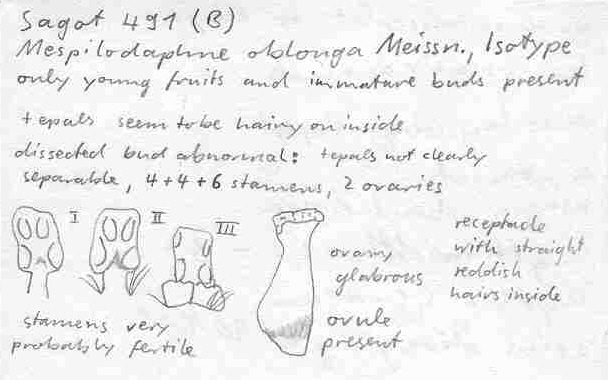 Sagot 491 (B)
Mespilodaphne oblonga Meissn., Isotype
only young fruits and immature buds present
tepals seem to be hairy on inside
dissected bud abnormal: tepals not clearly
separable, 4+4+6 stamens, 2 ovaries
I II III
stamens very
probably fertile
ovary
glabrous
ovule
present
receptacle
with straight
reddish
hairs inside